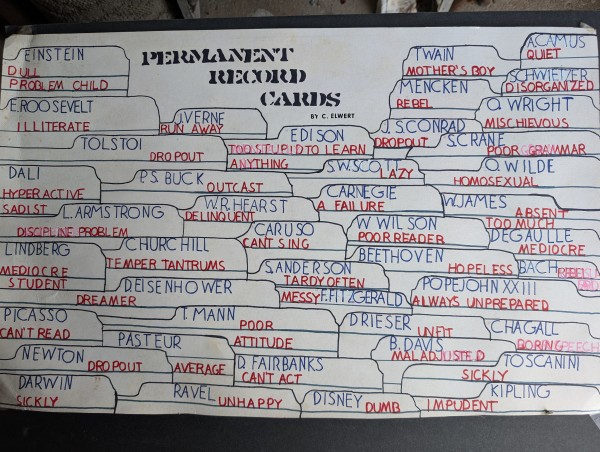 PERMANENT
RECORD
CARDS
BY C. ELWERT
EINSTEIN
DULL
PROBLEM CHILD
TWAIN
MOTHER'S BOY
A.CAMUS
QUIET
SCHWIETZER
DISORGANIZED
MENCKEN
REBEL
O. WRIGHT
MISCHIEVOUS
E.ROOSEVELT
ILLITERATE
J.VERNE
RUN AWAY
EDISON
TOO STUPID TO LEARN
ANYTHING
J.S.CONRAD
DROPOUT
S.CRANE
POOR GRAMMAR
TOLSTOI
DROPOUT
S.W.SCOTT
LAZY
O. WILDE
HOMOSEXUAL
DALI
HYPERACTIVE
SADIST
P.S. BUCK
OUTCAST
CARNEGIE
A FAILURE
W.JAMES
ABSENT
TOO MUCH
L. ARMSTRONG
DISCIPLINE PROBLEM
W.R.HEARST
DELINQUENT
CARUSO
CAN'T SING
W WILSON
POOR READER
DEGAULLE
MEDIOCRE
LINDBERG
MEDIOCRE
STUDENT
CHURCHILL
TEMPER TANTRUMS
BEETHOVEN
HOPELESS
BACH
S.ANDERSON
TARDY OFTEN
D.EISENHOWER
DREAMER
MESSY
F.FITZGERALD
POPE JOHN XXIII
ALWAYS UNPREPARED
PICASSO
CAN'T READ
T. MANN
POOR
ATTITUDE
DRIESER
UNFIT
CHAGALL
PASTEUR
AVERAGE
B. DAVIS
MALADJUSTED
NEWTON
DROPOUT
D. FAIRBANKS
CAN'T ACT
TOSCANINI
SICKLY
DARWIN
SICKLY
RAVEL
UNHAPPY
DISNEY
DUMB
KIPLING
IMPUDENT